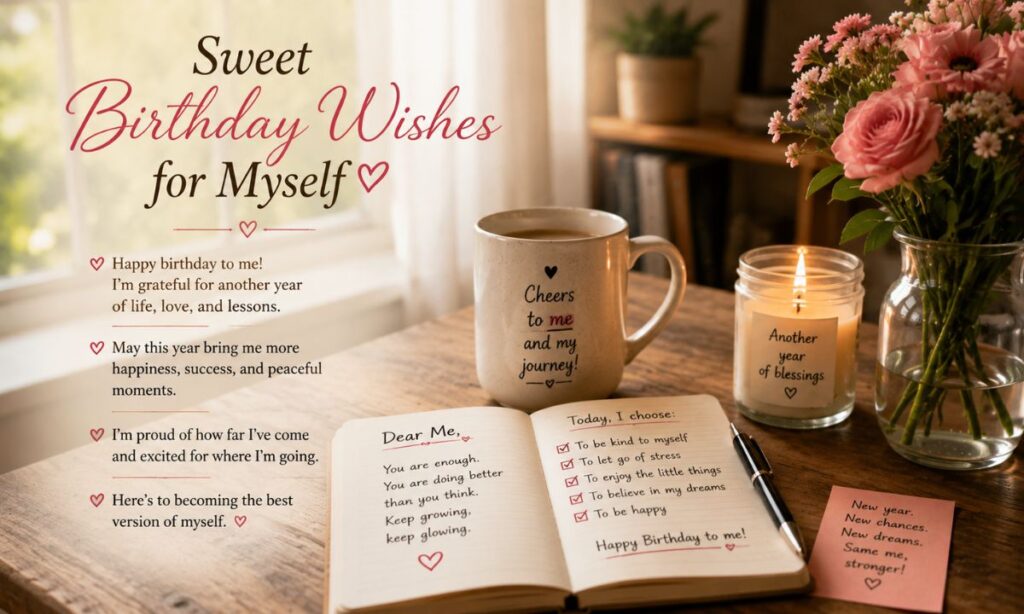 Sweet
Birthday Wishes
for Myself
Happy birthday to me!
I'm grateful for another year
of life, love, and lessons.
May this year bring me more
happiness, success, and peaceful
moments.
I'm proud of how far I've come
and excited for where I'm going.
Here's to becoming the best
version of myself.
Cheers
to me
and my
journey!
Another
year
of blessings
Dear Me,
You are enough.
You are doing better
than you think.
Keep growing,
keep glowing.
Today, I choose:
To be kind to myself
To let go of stress
To enjoy the little things
To believe in my dreams
To be happy
Happy Birthday to me!
New year.
New chances.
New dreams.
Same me,
stronger!